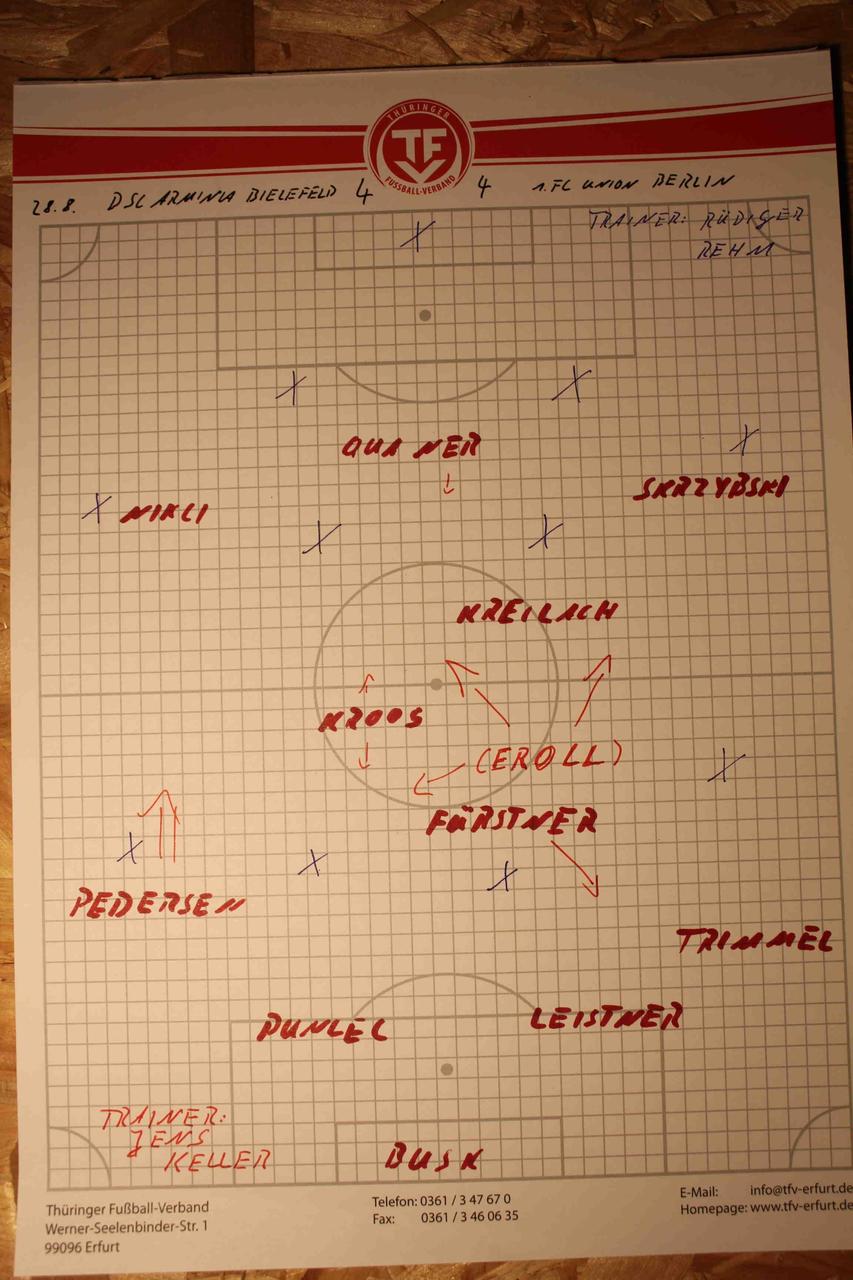 THÜRINGER
TF
FUSSBALL-VERBAND
28.8. DSC ARMINIA BIELEFELD 4 4 1.FC UNION BERLIN
TRAINER: RÜDIGER
REHM
QUANER
SKRZYBSKI
NIKLI
KREILACH
KROOS
(EROLL)
FÜRSTNER
PEDERSEN
TRIMMEL
PUNCEL LEISTNER
TRAINER:
JENS
KELLER
BUSK
Thüringer Fußball-Verband
Werner-Seelenbinder-Str. 1
99096 Erfurt
Telefon: 0361 / 3 47 67 0
Fax: 0361 / 3 46 06 35
E-Mail: info@tfv-erfurt.de
Homepage: www.tfv-erfurt.de